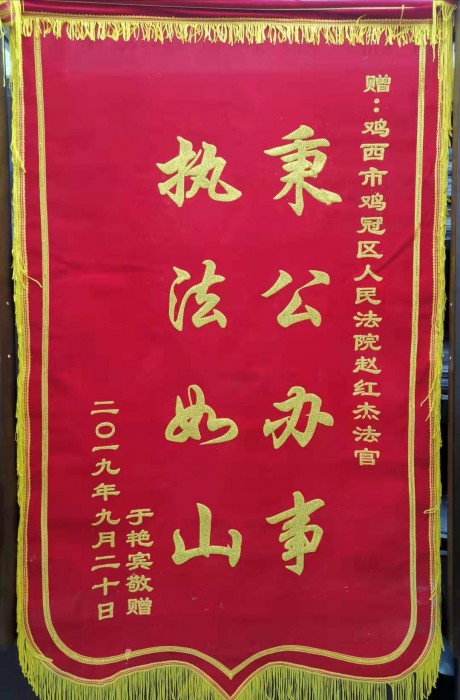 赠：鸡西市鸡冠区人民法院赵红杰法官
秉公办事
执法如山
于艳宾敬赠
二〇一九年九月二十日